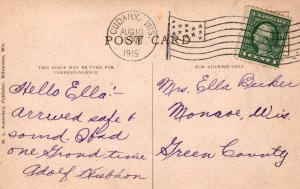 CUDAHY, WIS.
AUG 10
1915
POST CARD
THIS SPACE MAY BE USED FOR CORRESPONDENCE
FOR ADDRESS ONLY
Hello Ella:-
Arrived safe &
sound. Had
one Grand time
Adolf
Mrs. Ella Becker
Monroe, Wis.
Green County